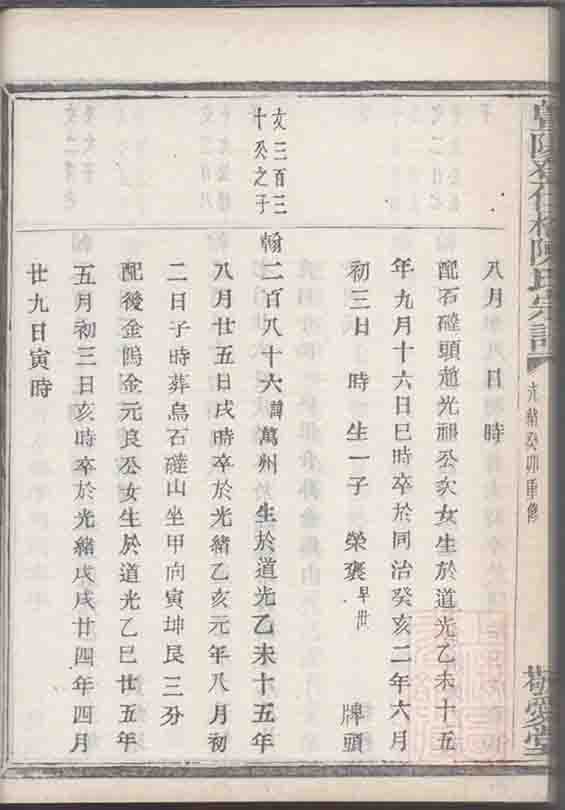 暨陽孝義橋陳氏宗譜
光緒癸卯重修
敬愛堂
八月廿八日 時
配石礶頭趙光細公次女生於道光乙未十五
年九月十六日巳時卒於同治癸亥二年六月
初三日 時 生一子 榮褒 早世 牌頭
友三百三
十癸之子
翰二百八十六 諱萬州 生於道光乙未十五年
八月廿五日戌時卒於光緒乙亥元年八月初
二日子時葬烏石礶山坐甲向寅坤艮三分
配後金塢金元良公女生於道光乙巳廿五年
五月初三日亥時卒於光緒戊戌廿四年四月
廿九日寅時